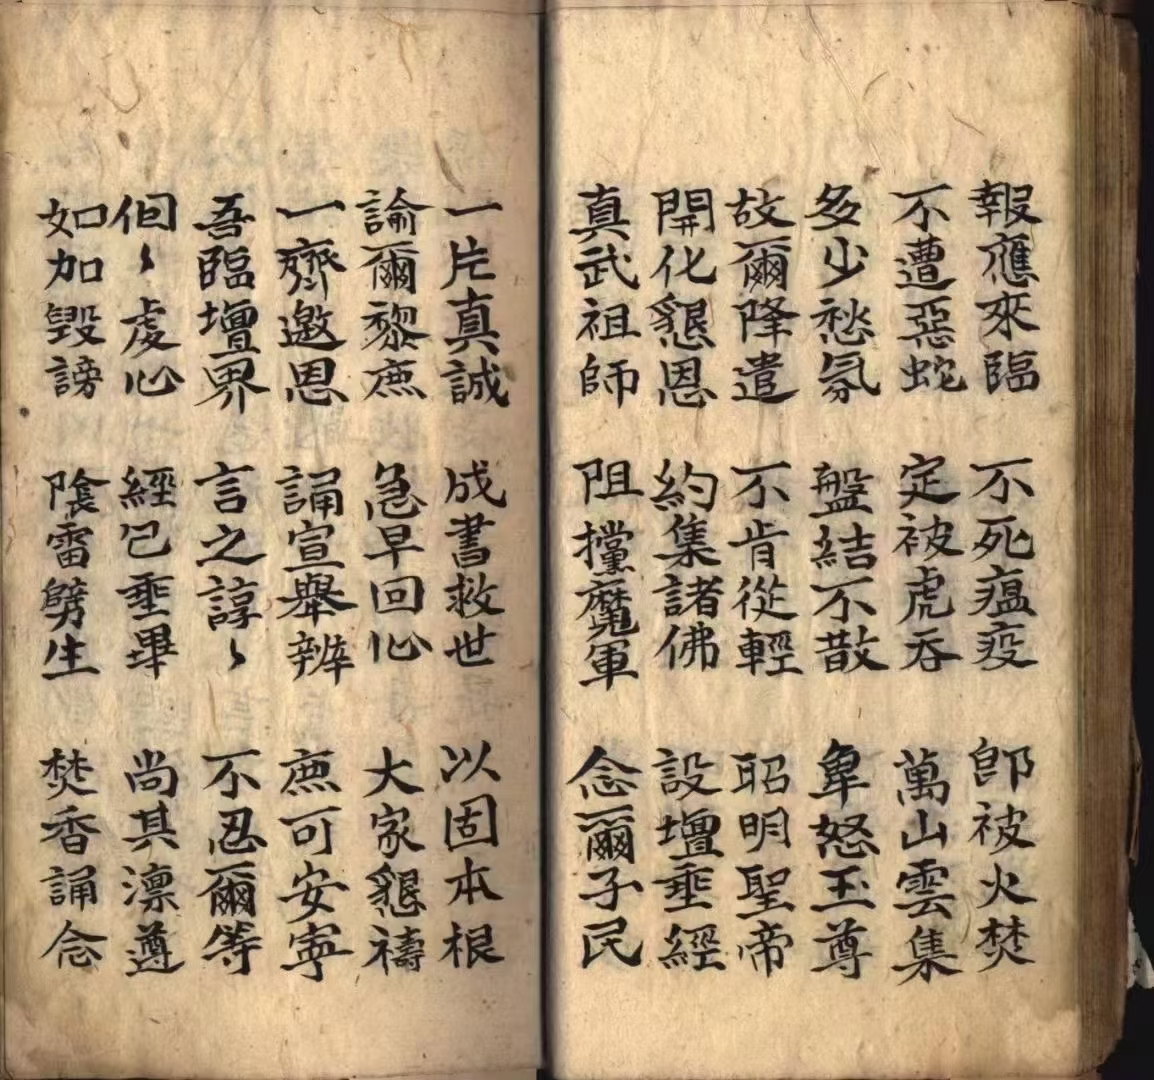 報應來臨 不死瘟疫 即被火焚
不遭惡蛇 定被虎吞 萬山雲集
多少愁氛 盤結不散 辠怒玉尊
故爾降遣 不肯從輕 昭明聖帝
開化懇恩 約集諸佛 設壇垂經
真武祖師 阻擋魔軍 念爾子民
一片真誠 成書救世 以固本根
諭爾黎庶 急早回心 大家懇禱
一齊邀恩 誦宣舉辦 庶可安寧
吾臨壇界 言之諄々 不忍爾等
個々虔心 經已垂畢 尚其凛遵
如加毀謗 陰雷劈生 焚香誦念